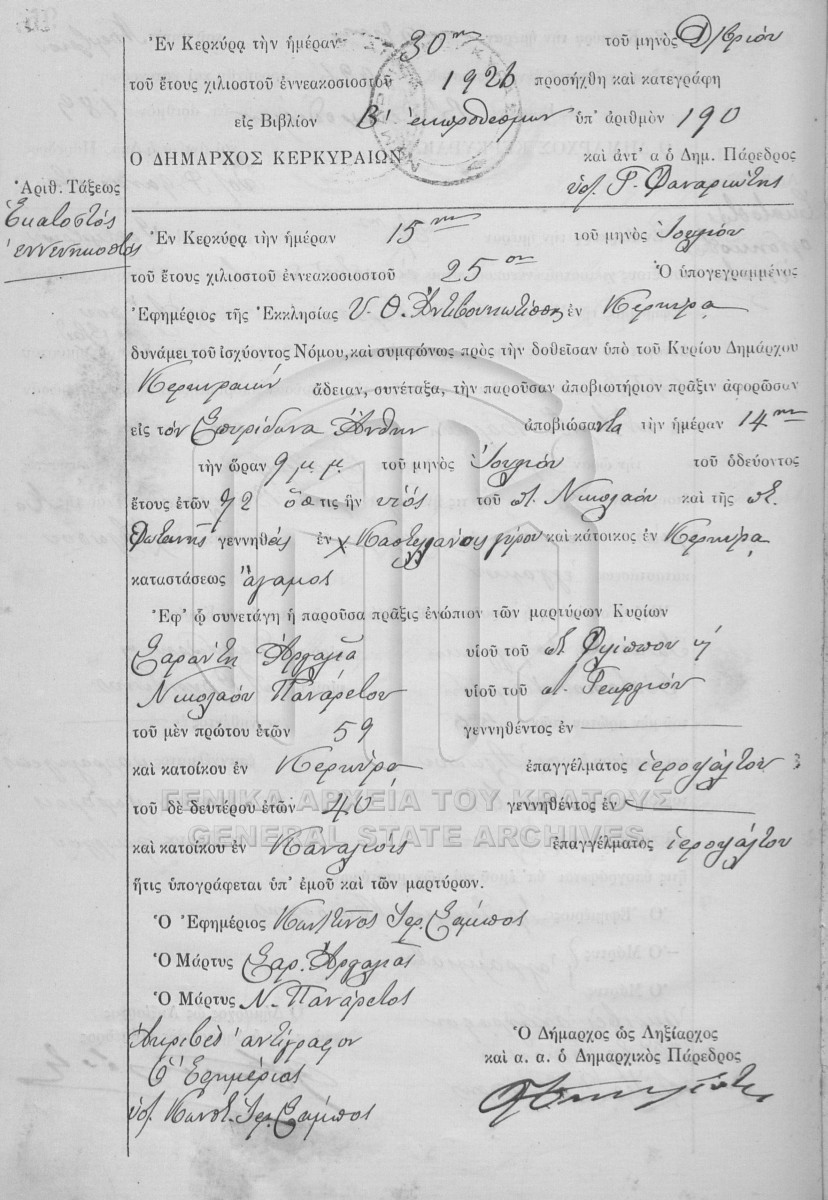 Ἐν Κερκύρᾳ τὴν ἡμέραν 30ην τοῦ μηνὸς Δ/βρίου
τοῦ ἔτους χιλιοστοῦ ἐννεακοσιοστοῦ 1926 προσήχθη καὶ κατεγράφη
εἰς Βιβλίον Β' ἐκπροθέσμων ὑπ' ἀριθμὸν 190
Ο ΔΗΜΑΡΧΟΣ ΚΕΡΚΥΡΑΙΩΝ καὶ ἀντ' α ὁ Δημ. Πάρεδρος
ὑπ. Γ. Φαναριώτης
Ἀριθ. Τάξεως
Ἑκατοστός
ἐννενηκοστός
Ἐν Κερκύρᾳ τὴν ἡμέραν 15ην τοῦ μηνὸς Ἰουλίου
τοῦ ἔτους χιλιοστοῦ ἐννεακοσιοστοῦ 25ου Ὁ ὑπογεγραμμένος
Ἐφημέριος τῆς Ἐκκλησίας Υ. Θ. Ἀντιβουνιωτίσσης ἐν Κερκύρᾳ
δυνάμει τοῦ ἰσχύοντος Νόμου, καὶ συμφώνως πρὸς τὴν δοθεῖσαν ὑπὸ τοῦ Κυρίου Δημάρχου
Κερκυραίων ἄδειαν, συνέταξα, τὴν παροῦσαν ἀποβιωτήριον πρᾶξιν ἀφορῶσαν
εἰς τὸν Σπυρίδωνα Ἄνθην ἀποβιώσαντα τὴν ἡμέραν 14ην
τὴν ὥραν 9 μ.μ. τοῦ μηνὸς Ἰουλίου τοῦ ὁδεύοντος
ἔτους ἐτῶν 72 ὅστις ἦν υἱός τοῦ π. Νικολάου καὶ τῆς π.
Φωτεινῆς γεννηθείς ἐν Καστελλάνους γύρου καὶ κάτοικος ἐν Κερκύρᾳ
καταστάσεως ἄγαμος
Ἐφ' ᾧ συνετάγη ἡ παροῦσα πρᾶξις ἐνώπιον τῶν μαρτύρων Κυρίων
Σαράντη Ἀρφαλιᾶ υἱοῦ τοῦ π. Φιλίππου ή
Νικολάου Πανάρετου υἱοῦ τοῦ π. Γεωργίου
τοῦ μὲν πρώτου ἐτῶν 59 γεννηθέντος ἐν
καὶ κατοίκου ἐν Κερκύρᾳ ἐπαγγέλματος ἱεροψάλτου
τοῦ δὲ δευτέρου ἐτῶν 40 γεννηθέντος ἐν
ΓΕΝΙΚΑ ΑΡΧΕΙΑ ΤΟΥ ΚΡΑΤΟΥΣ
GENERAL STATE ARCHIVES
καὶ κατοίκου ἐν Καναλίοις ἐπαγγέλματος ἱεροψάλτου
ἥτις ὑπογράφεται ὑπ' ἐμοῦ καὶ τῶν μαρτύρων.
Ὁ Ἐφημέριος Κων/τῖνος Ἱερ. Σάμπος
Ὁ Μάρτυς Σαρ. Ἀρφαλιᾶς
Ὁ Μάρτυς Ν. Πανάρετος
Ἀκριβές ἀντίγραφον
Ὁ Ἐφημέριος
ὑπ. Κωνστ. Ἱερ. Σάμπος
Ὁ Δήμαρχος ὡς Ληξίαρχος
καὶ α. α. ὁ Δημαρχικὸς Πάρεδρος